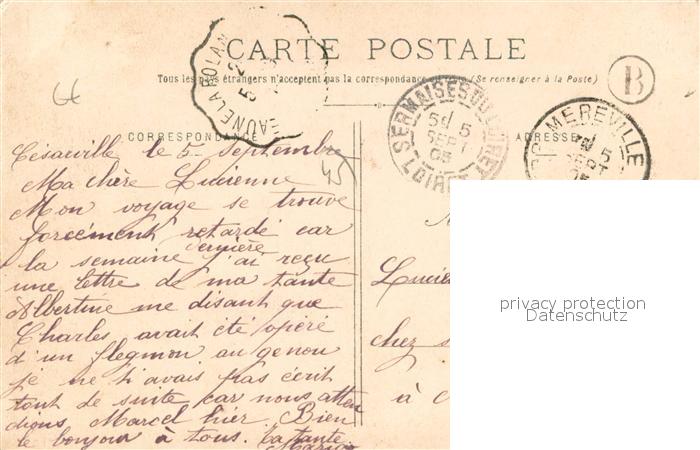 CARTE POSTALE
Tous les pays étrangers n'acceptent pas la correspondance au recto (Se renseigner à la Poste)
B
BEAUNE LA ROLAN
5 - 2
SERMAISES DU LOIRET
5 SEPT 05
LOIRET
MEREVILLE
5 SEPT 05
CORRESPONDANCE
ADRESSE
45
Césarville le 5 Septembre
Ma chère Lucienne
Mon voyage se trouve
forcément retardé car
la semaine dernière j'ai reçu
une lettre de ma tante
Albertine me disant que
Charles avait été opéré
d'un flegmon au genou
je ne t'avais pas écrit
tout de suite car nous atten
dions Marcel hier. Bien
le bonjour à tous. Ta tante
Maria
Lucien
chez
à
privacy protection
Datenschutz